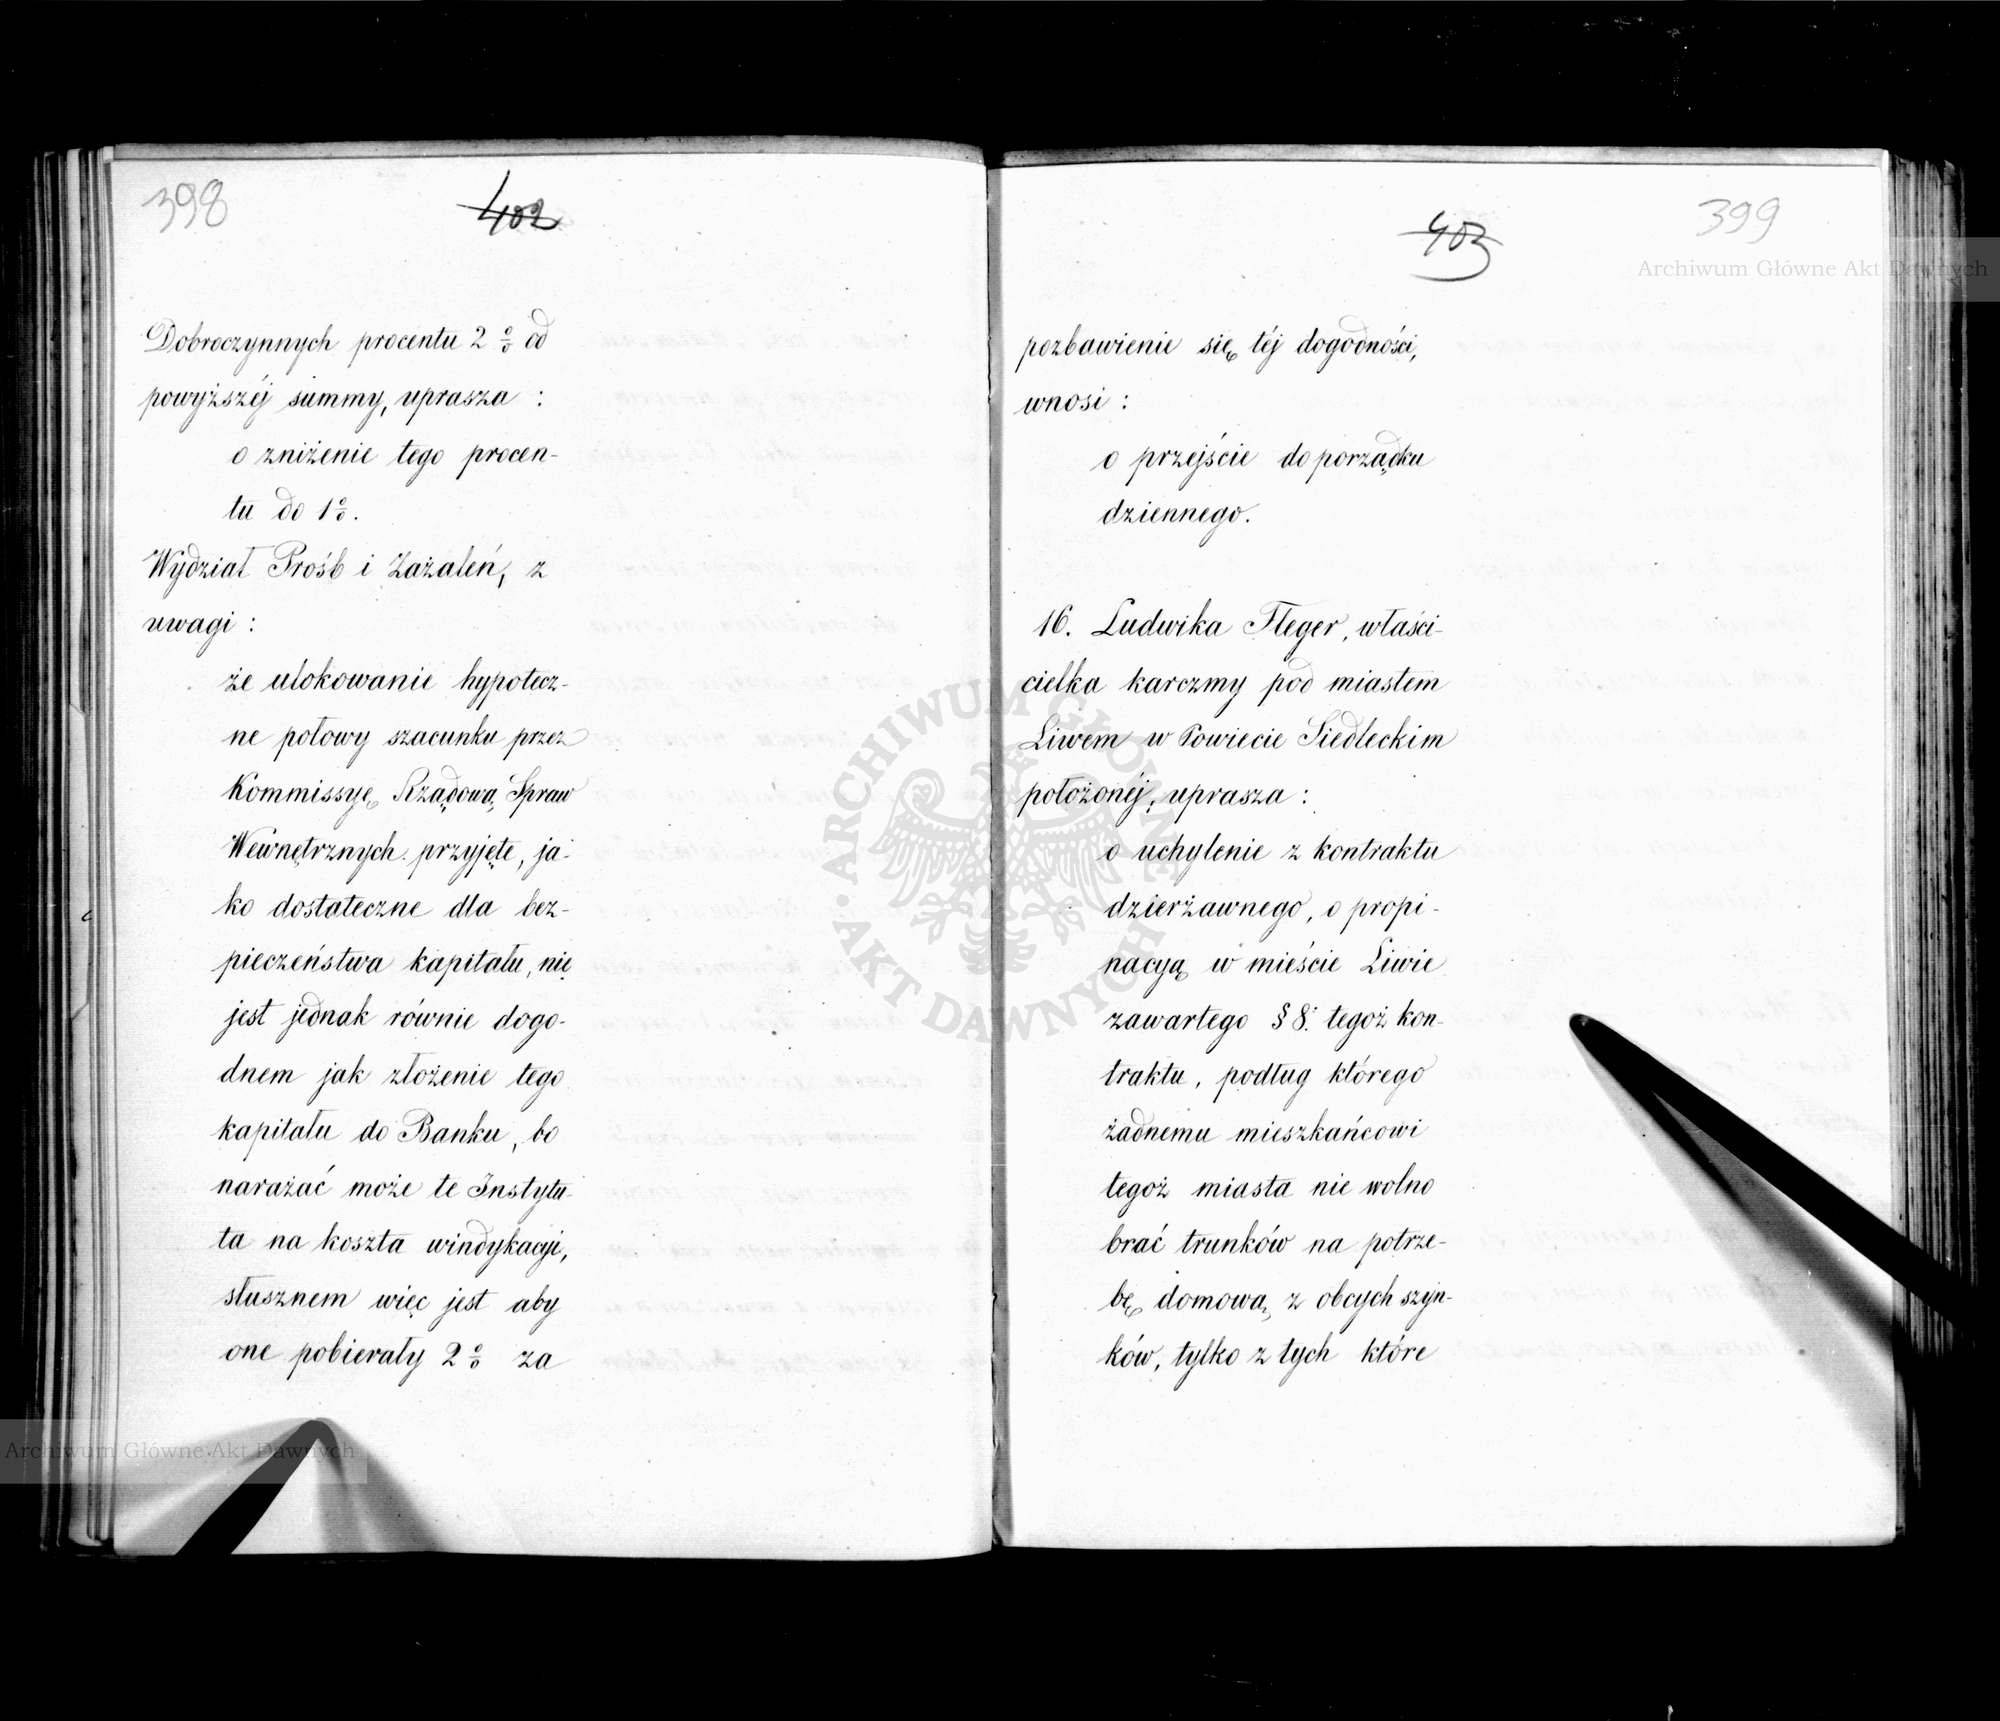 398
402
Dobroczynnych procentu 2 % od
powyższéj summy, uprasza :
o zniżenie tego procen-
tu do 1%.
Wydział Prośb i Zażaleń, z
uwagi :
że ulokowanie hypotecz-
ne połowy szacunku przez
Kommissyę Rządową Spraw
Wewnętrznych przyjęte, ja-
ko dostateczne dla bez-
pieczeństwa kapitału, nie
jest jednak równie dogo-
dnem jak złożenie tego
kapitału do Banku, bo
narażać może te Instytu-
ta na koszta windykacyi,
słusznem więc jest aby
one pobierały 2 % za
399
403
pozbawienie się téj dogodności,
wnosi :
o przejście do porządku
dziennego.
16. Ludwika Fleger, właści-
cielka karczmy pod miastem
Liwem w Powiecie Siedleckim
położonéj, uprasza :
o uchylenie z kontraktu
dzierżawnego, o propi-
nacyą w mieście Liwie
zawartego § 8. tegoż kon-
traktu, podług którego
żadnemu mieszkańcowi
tegoż miasta nie wolno
brać trunków na potrze-
bę domową z obcych szyn-
ków, tylko z tych które
Archiwum Główne Akt Dawnych
Archiwum Główne Akt Dawnych
ARCHIWUM GŁÓWNE AKT DAWNYCH